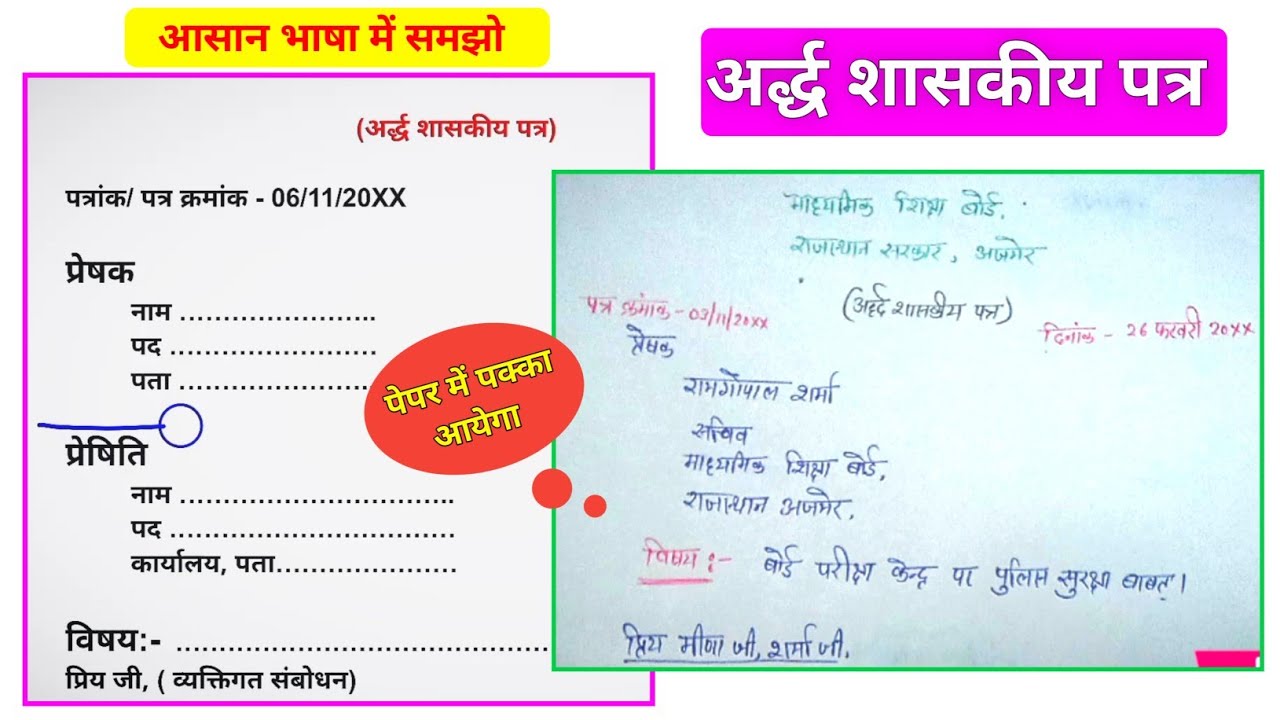 आसान भाषा में समझो
अर्द्ध शासकीय पत्र
(अर्द्ध शासकीय पत्र)
पत्रांक/ पत्र क्रमांक - 06/11/20XX
प्रेषक
नाम ......................
पद .......................
पता ......................
प्रेषिति
नाम ...............................
पद ................................
कार्यालय, पता.....................
विषय:- ..........................................
प्रिय जी, ( व्यक्तिगत संबोधन)
पेपर में पक्का
आयेगा
माध्यमिक शिक्षा बोर्ड,
राजस्थान सरकार, अजमेर
(अर्द्द शासकीय पत्र)
पत्र क्रंमाक - 03/11/20xx
दिनांक - 26 फरवरी 20xx
प्रेषक
रामगोपाल शर्मा
सचिव
माध्यमिक शिक्षा बोर्ड,
राजस्थान अजमेर,
विषय :- बोर्ड परीक्षा केन्द्र पर पुलिस सुरक्षा बाबत्।
प्रिय मीणा जी, शर्मा जी.